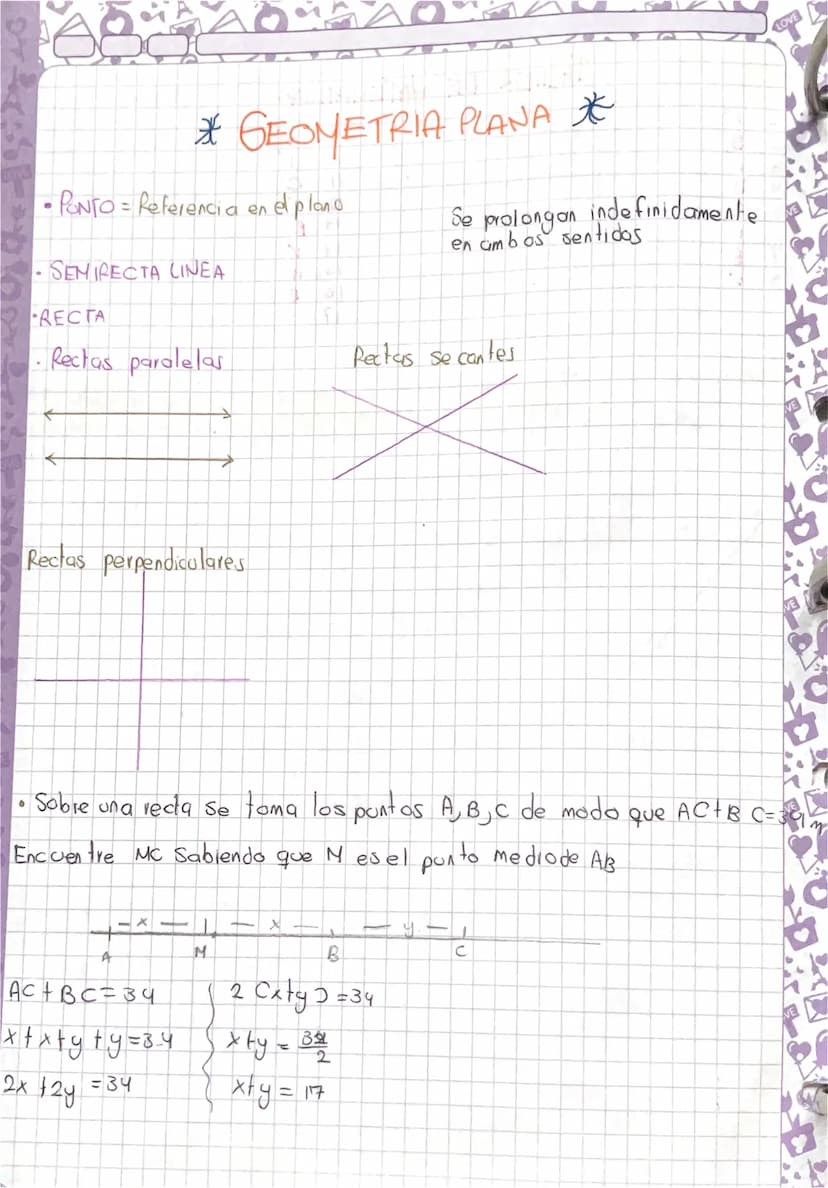 * GEOMETRIA PLANA *
• PUNTO = Referencia en el plano
Se prolongan indefinidamente
en ambos sentidos
• SEMIRECTA LINEA
• RECTA
• Rectas paralelas
Rectas secantes
Rectas perpendiculares
• Sobre una recta se toma los puntos A, B, C de modo que AC + BC = 34m
Encuentre MC Sabiendo que M es el punto medio de AB
– x — — x — — y –
A M B C
AC + BC = 34
x + x + y + y = 34
2x + 2y = 34
2 (x+y) = 34
x+y = 34/2
x+y = 17
LOVE